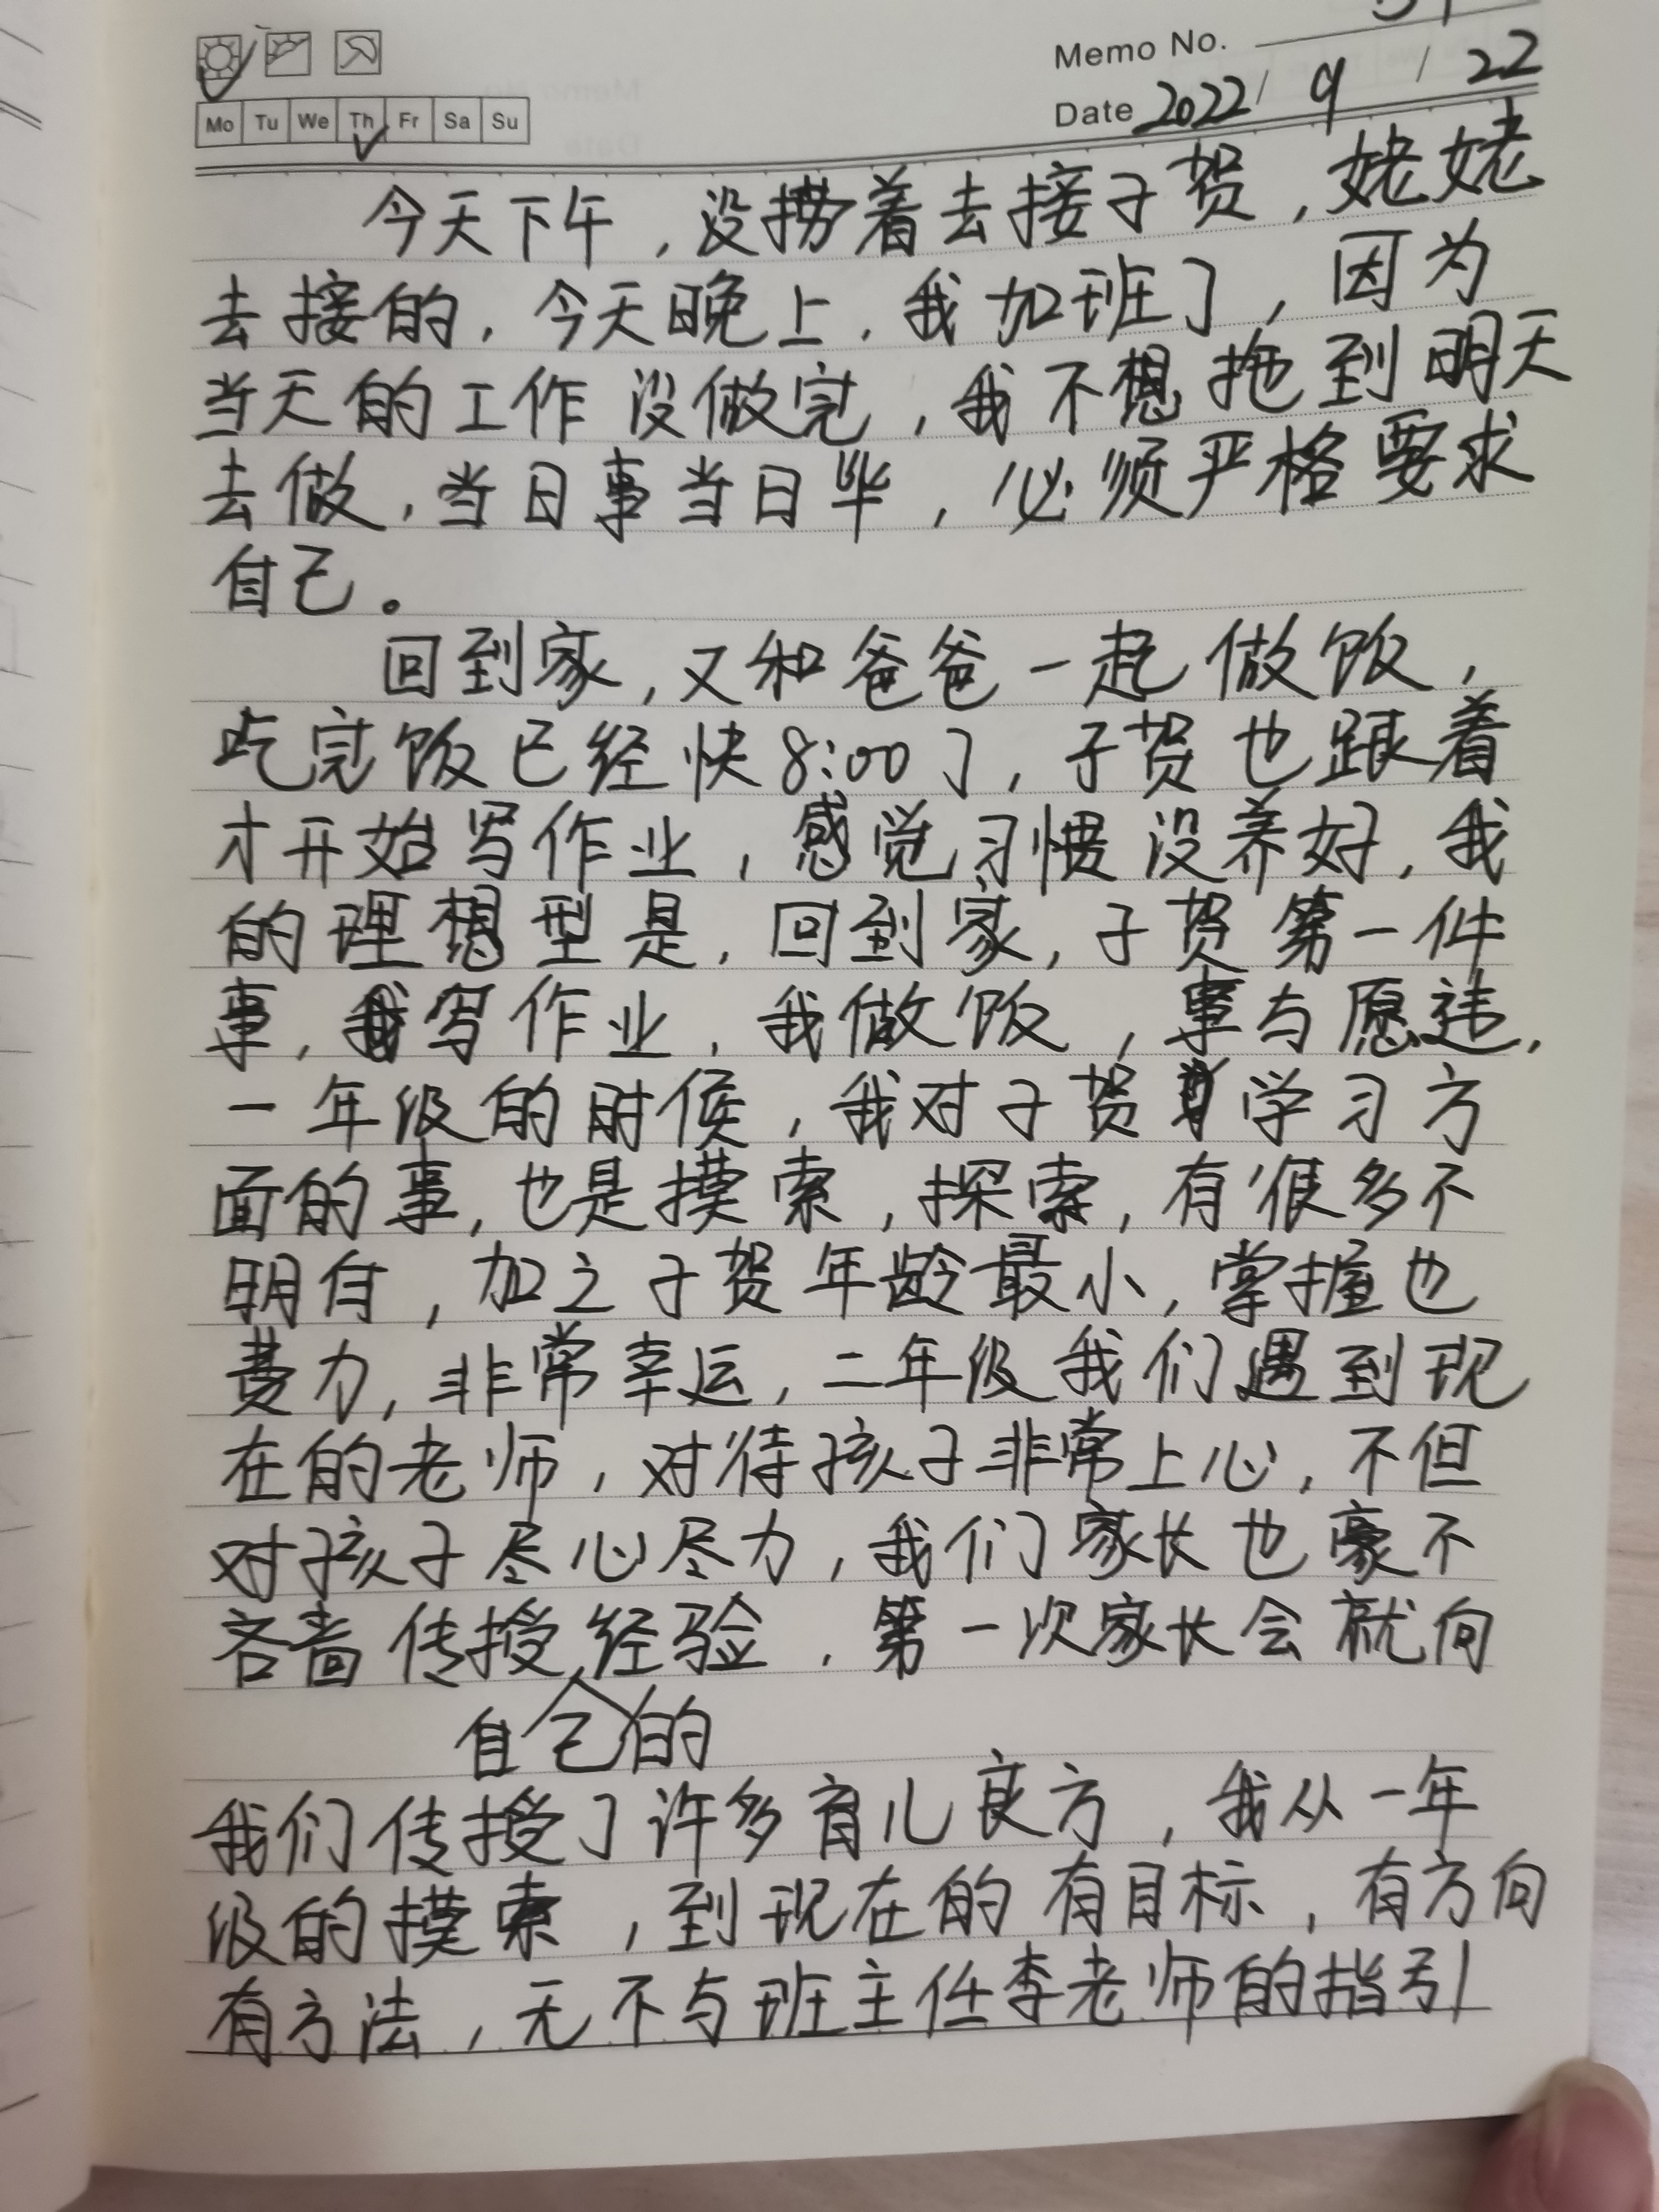 Memo No.
Mo Tu We Th Fr Sa Su
Date 2022/9/22
今天下午，没捞着去接子贺，姥姥
去接的，今天晚上，我加班了，因为
当天的工作没做完，我不想拖到明天
去做，当日事当日毕，必须严格要求
自己。
回到家，又和爸爸一起做饭，
吃完饭已经快8:00了，子贺也跟着
才开始写作业，感觉习惯没养好，我
的理想型是，回到家，子贺第一件
事，写作业，我做饭，事与愿违，
一年级的时候，我对子贺学习方
面的事，也是摸索，探索，有很多不
明白，加之子贺年龄最小，掌握也
费力，非常幸运，二年级我们遇到现
在的老师，对待孩子非常上心，不但
对孩子尽心尽力，我们家长也豪不
吝啬传授经验，第一次家长会就向
自己的
我们传授了许多育儿良方，我从一年
级的摸索，到现在的有目标，有方向
有方法，无不与班主任李老师的指引